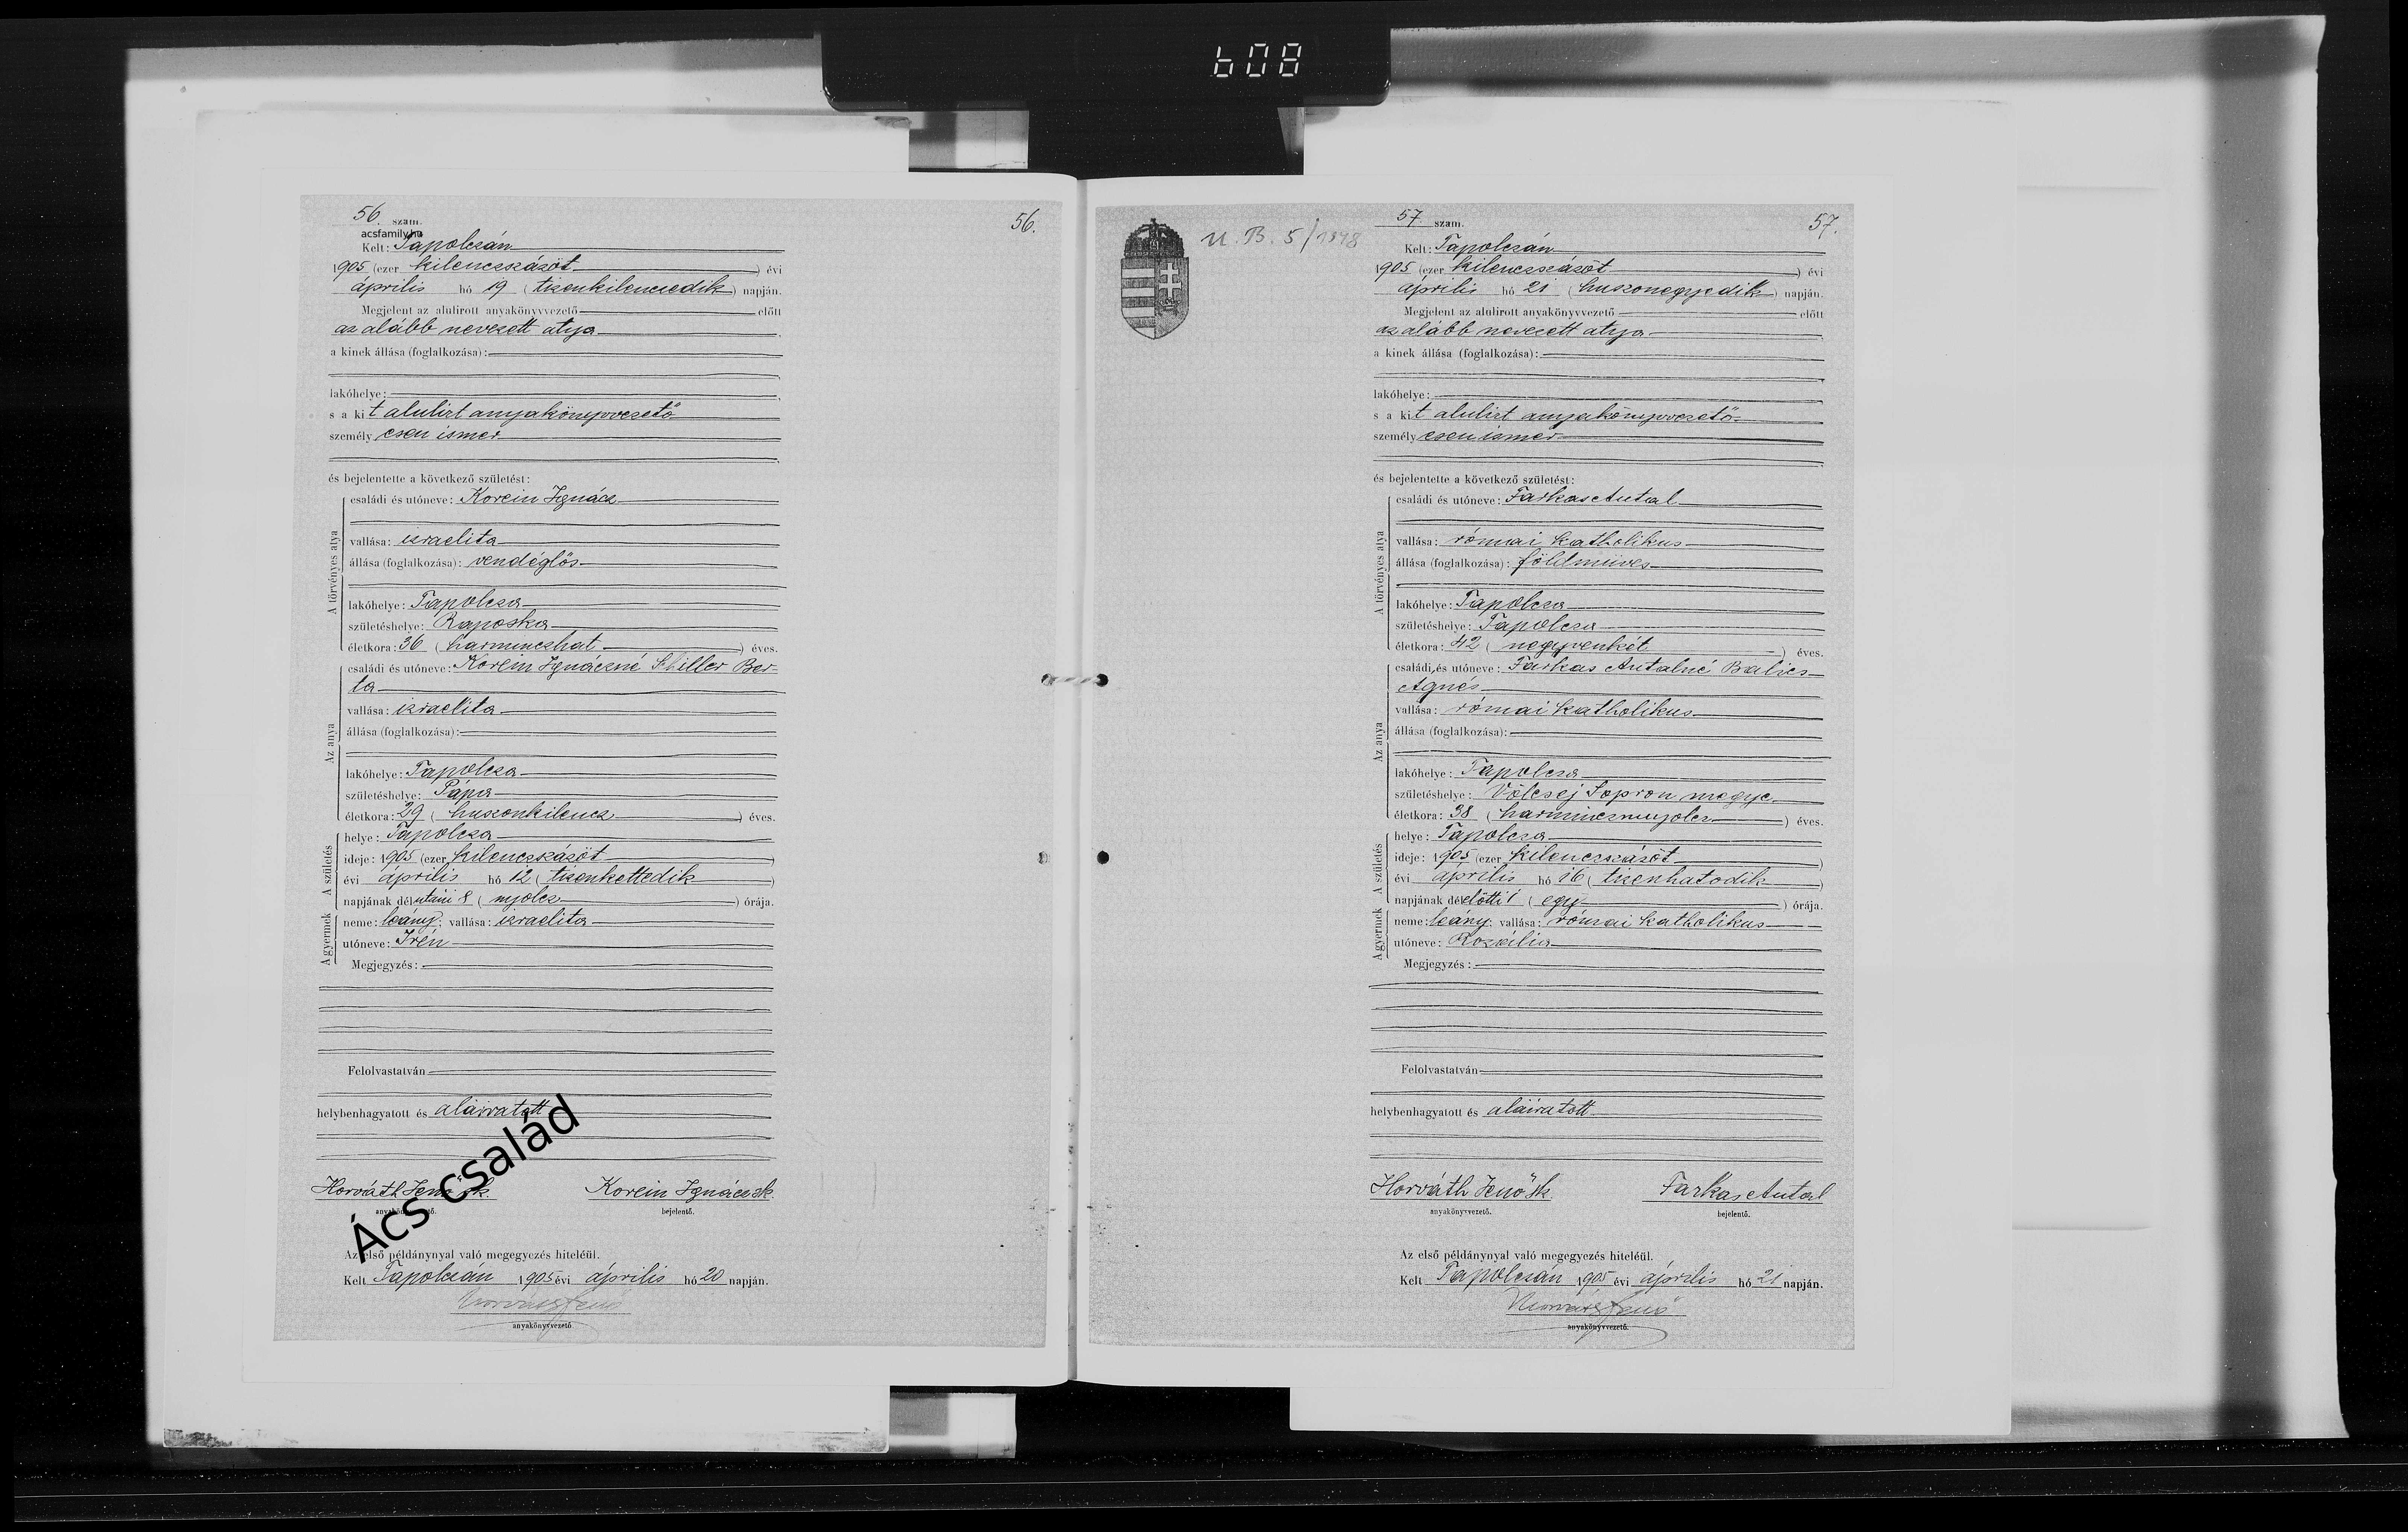 608
56 szám.
56.
acsfamily.hu
Kelt: Tapolczán
1905 (ezer kilenczszázöt ) évi
április hó 19 (tizenkilenczedik) napján.
Megjelent az alulirott anyakönyvvezető előtt
az alább nevezett atya
a kinek állása (foglalkozása):
lakóhelye:
s a kit alulirt anyakönyvvezető
személyesen ismer
és bejelentette a következő születést:
A törvényes atya
családi és utóneve: Korein Ignácz
vallása: izraelita
állása (foglalkozása): vendéglős
lakóhelye: Tapolcza
születéshelye: Raposka
életkora: 36 (harminczhat) éves.
Az anya
családi és utóneve: Korein Ignáczné Schiller Ber-
ta
vallása: izraelita
állása (foglalkozása):
lakóhelye: Tapolcza
születéshelye: Pápa
életkora: 29 (huszonkilencz) éves.
A születés
helye: Tapolcza
ideje: 1905 (ezer kilenczszázöt )
évi április hó 12 (tizenkettedik)
napjának délutáni 8 (nyolcz) órája.
A gyermek
neme: leány; vallása: izraelita
utóneve: Irén
Megjegyzés:
Felolvastatván
helybenhagyatott és aláiratott
Horváth Jenő sk.
Korein Ignácz sk.
anyakönyvvezető.
bejelentő.
Ács család
Az első példánynyal való megegyezés hiteléül.
Kelt Tapolczán 1905 évi április hó 20 napján.
Horváth Jenő
anyakönyvvezető.
U. B. 5/1948
57 szám.
57.
Kelt: Tapolczán
1905 (ezer kilenczszázöt ) évi
április hó 21 (huszonegyedik) napján.
Megjelent az alulirott anyakönyvvezető előtt
az alább nevezett atya
a kinek állása (foglalkozása):
lakóhelye:
s a kit alulirt anyakönyvvezető
személyesen ismer
és bejelentette a következő születést:
A törvényes atya
családi és utóneve: Farkas Antal
vallása: római katholikus
állása (foglalkozása): földmüves
lakóhelye: Tapolcza
születéshelye: Tapolcza
életkora: 42 (negyvenkét) éves.
Az anya
családi és utóneve: Farkas Antalné Balics
Agnés
vallása: római katholikus
állása (foglalkozása):
lakóhelye: Tapolcza
születéshelye: Völcsej Sopron megye
életkora: 38 (harmincznyolcz) éves.
A születés
helye: Tapolcza
ideje: 1905 (ezer kilenczszázöt )
évi április hó 16 (tizenhatodik)
napjának délelőtti 1 (egy) órája.
A gyermek
neme: leány; vallása: római katholikus
utóneve: Rozália
Megjegyzés:
Felolvastatván
helybenhagyatott és aláiratott
Horváth Jenő sk.
Farkas Antal
anyakönyvvezető.
bejelentő.
Az első példánynyal való megegyezés hiteléül.
Kelt Tapolczán 1905 évi április hó 21 napján.
Horváth Jenő
anyakönyvvezető.